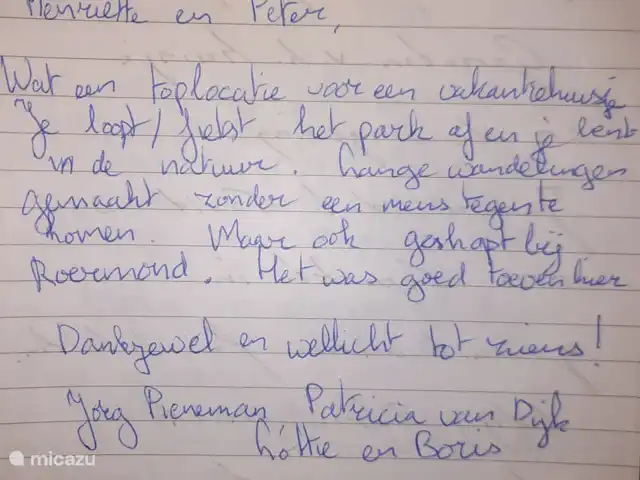 Henriette en Peter,
Wat een toplocatie voor een vakantiehuisje
Je loopt/fietst het park af en je bent
in de natuur. Lange wandelingen
gemaakt zonder een mens tegen te
komen. Maar ook geshopt bij
Roermond. Het was goed toeven hier
Dankjewel en wellicht tot ziens!
Jorg Pieneman Patricia van Dijk
Lottie en Boris
micazu